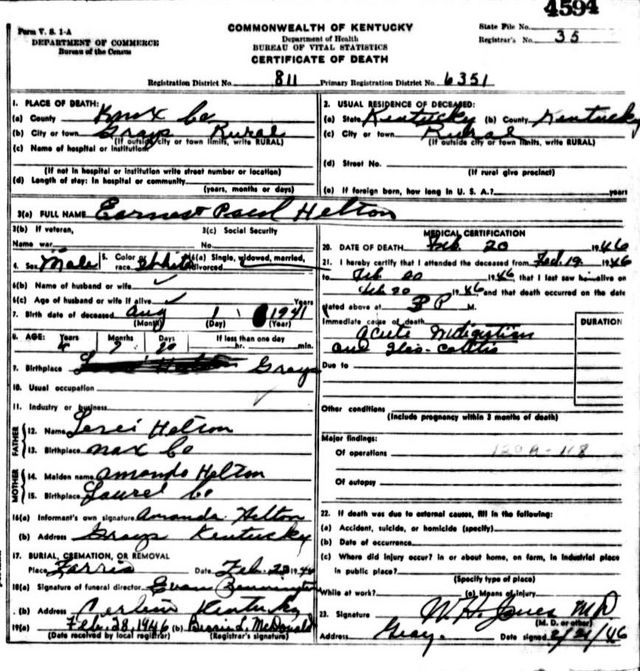 4594
Form V. S. 1-A
COMMONWEALTH OF KENTUCKY
State File No.
DEPARTMENT OF COMMERCE
Department of Health
Registrar's No. 35
Bureau of the Census
BUREAU OF VITAL STATISTICS
CERTIFICATE OF DEATH
Registration District No. 811 Primary Registration District No. 6351
1. PLACE OF DEATH:
(a) County Knox Co
(b) City or town Grays Rural
(If outside city or town limits, write RURAL)
(c) Name of hospital or institution
(If not in hospital or institution write street number or location)
(d) Length of stay: In hospital or community
(years, months or days)
2. USUAL RESIDENCE OF DECEASED:
(a) State Kentucky (b) County Kentucky
(c) City or town Rural
(If outside city or town limits, write RURAL)
(d) Street No.
(If rural give precinct)
(e) If foreign born, how long in U. S. A.? years
3(a) FULL NAME Earnest Paul Helton
3(b) If veteran, 3(c) Social Security
Name war No.
4. Sex Male 5. Color or race White 6(a) Single, widowed, married, divorced
6(b) Name of husband or wife
6(c) Age of husband or wife if alive Years
7. Birth date of deceased Aug 1 1941
(Month) (Day) (Year)
8. AGE: Years Months Days If less than one day
4 20 hr. min.
9. Birthplace Grays
10. Usual occupation
11. Industry or business
FATHER
12. Name Helton
13. Birthplace nax Co
MOTHER
14. Maiden name Amanda Helton
15. Birthplace Laurel Co
16(a) Informant's own signature Amanda Helton
(b) Address Grays Kentucky
17. BURIAL, CREMATION, OR REMOVAL
Place Farris Date Feb. 1946
18(a) Signature of funeral director
(b) Address Corbin Kentucky
19(a) Feb. 28, 1946 (b) L. McDonald
(Date received by local registrar) (Registrar's signature)
MEDICAL CERTIFICATION
20. DATE OF DEATH Feb. 20 1946
21. I hereby certify that I attended the deceased from Feb. 19 1946
to Feb 20 1946 that I last saw h alive on
Feb 20 1946 and that death occurred on the date
stated above at P M.
Immediate cause of death
DURATION
Acute Indigestion
and Ileo-Colitis
Due to
Other conditions
(Include pregnancy within 3 months of death)
Major findings:
Of operations
Of autopsy
22. If death was due to external causes, fill in the following:
(a) Accident, suicide, or homicide (specify)
(b) Date of occurrence
(c) Where did injury occur? in or about home, on farm, in industrial place
in public place?
(Specify type of place)
While at work? (e) Means of injury
23. Signature W. H. Jones M D
(M. D. or other)
Address Grays Date signed 2/21/46